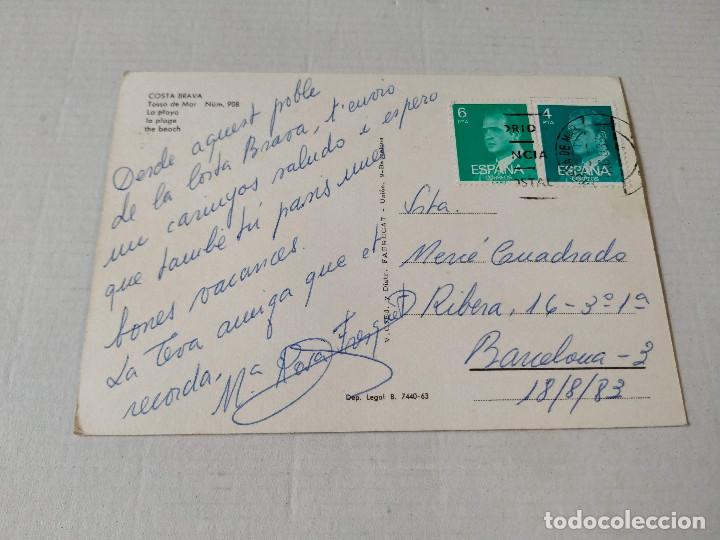 COSTA BRAVA
Tossa de Mar Núm. 908
La playa
la plage
the beach
Desde aquest poble
de la Costa Brava, t'envio
un carinyos saludo i espero
que també tú passis unes
bones vacances.
La Teva amiga que et
recorda,
Mª Rosa
Dep. Legal B. 7440-63
FABREGAT
6
PTA
ESPAÑA
CORREOS
4
PTA
ESPAÑA
CORREOS
Srta.
Mercé Cuadrado
Ribera, 16-3º 1ª
Barcelona-3
18/8/83
todocoleccion